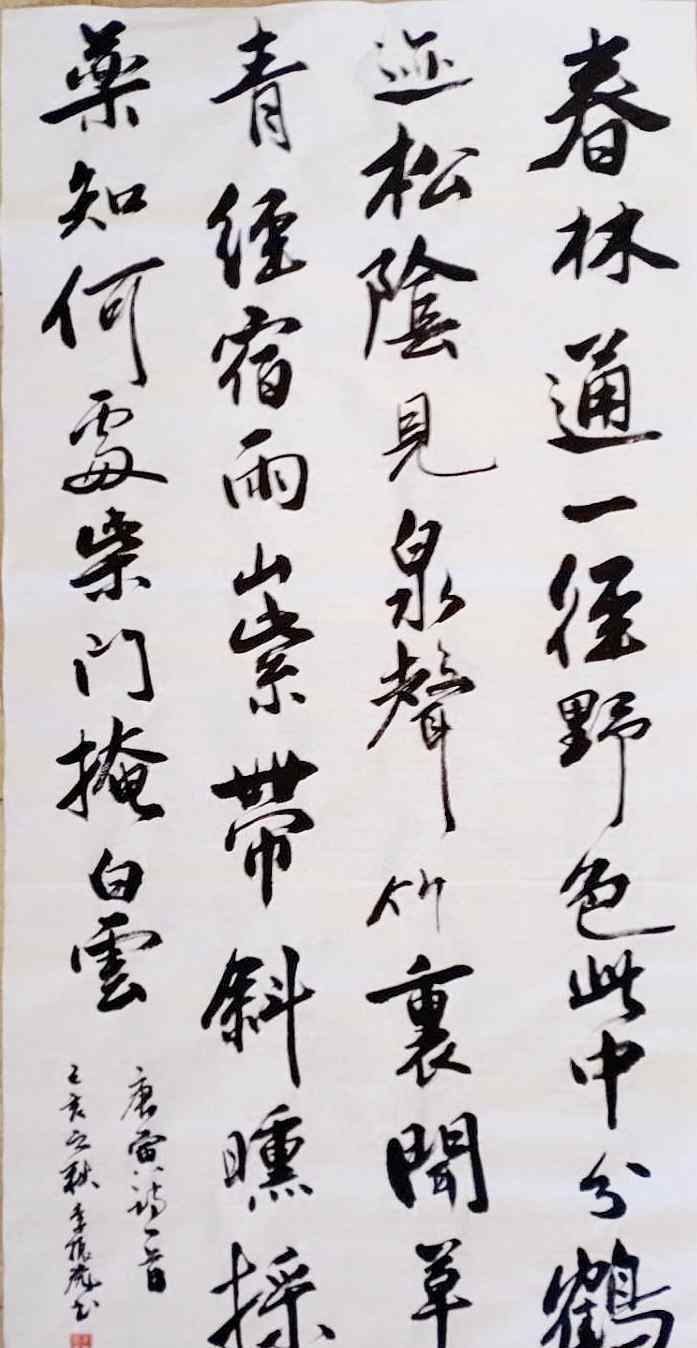 春林通一徑野色此中分鶴
迹松陰見泉聲竹裏聞草
青經宿雨山紫帶斜曛採
藥知何處柴門掩白雲
唐寅詩一首
己亥之秋李振书